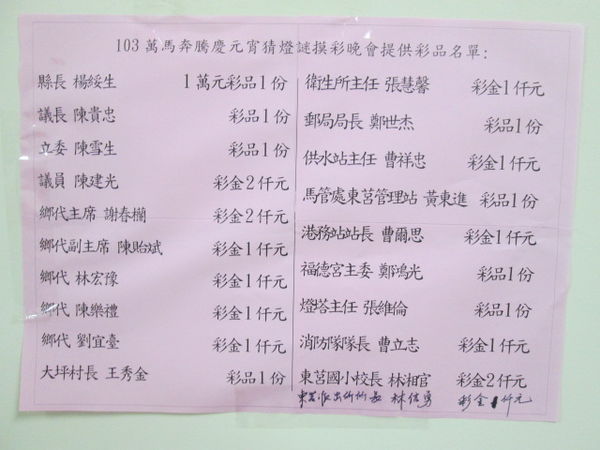 103萬馬奔騰慶元宵猜燈謎摸彩晚會提供彩品名單:
縣長 楊綏生 1萬元彩品1份
議長 陳貴忠 彩品1份
立委 陳雪生 彩品1份
議員 陳建光 彩金2仟元
鄉代主席 謝春欗 彩金2仟元
鄉代副主席 陳貽斌 彩金1仟元
鄉代 林宏豫 彩金1仟元
鄉代 陳樂禮 彩金1仟元
鄉代 劉宜臺 彩金1仟元
大坪村長 王秀金 彩品1份
衛生所主任 張慧馨 彩金1仟元
郵局局長 鄭世杰 彩品1份
供水站主任 曹祥忠 彩金1仟元
馬管處東莒管理站 黃東進 彩品1份
港務站站長 曹爾思 彩金1仟元
福德宮主委 鄭鴻光 彩品1份
燈塔主任 張維倫 彩品1份
消防隊隊長 曹立志 彩金1仟元
東莒國小校長 林湘官 彩金2仟元
東莒派出所所長 林信勇 彩金1仟元